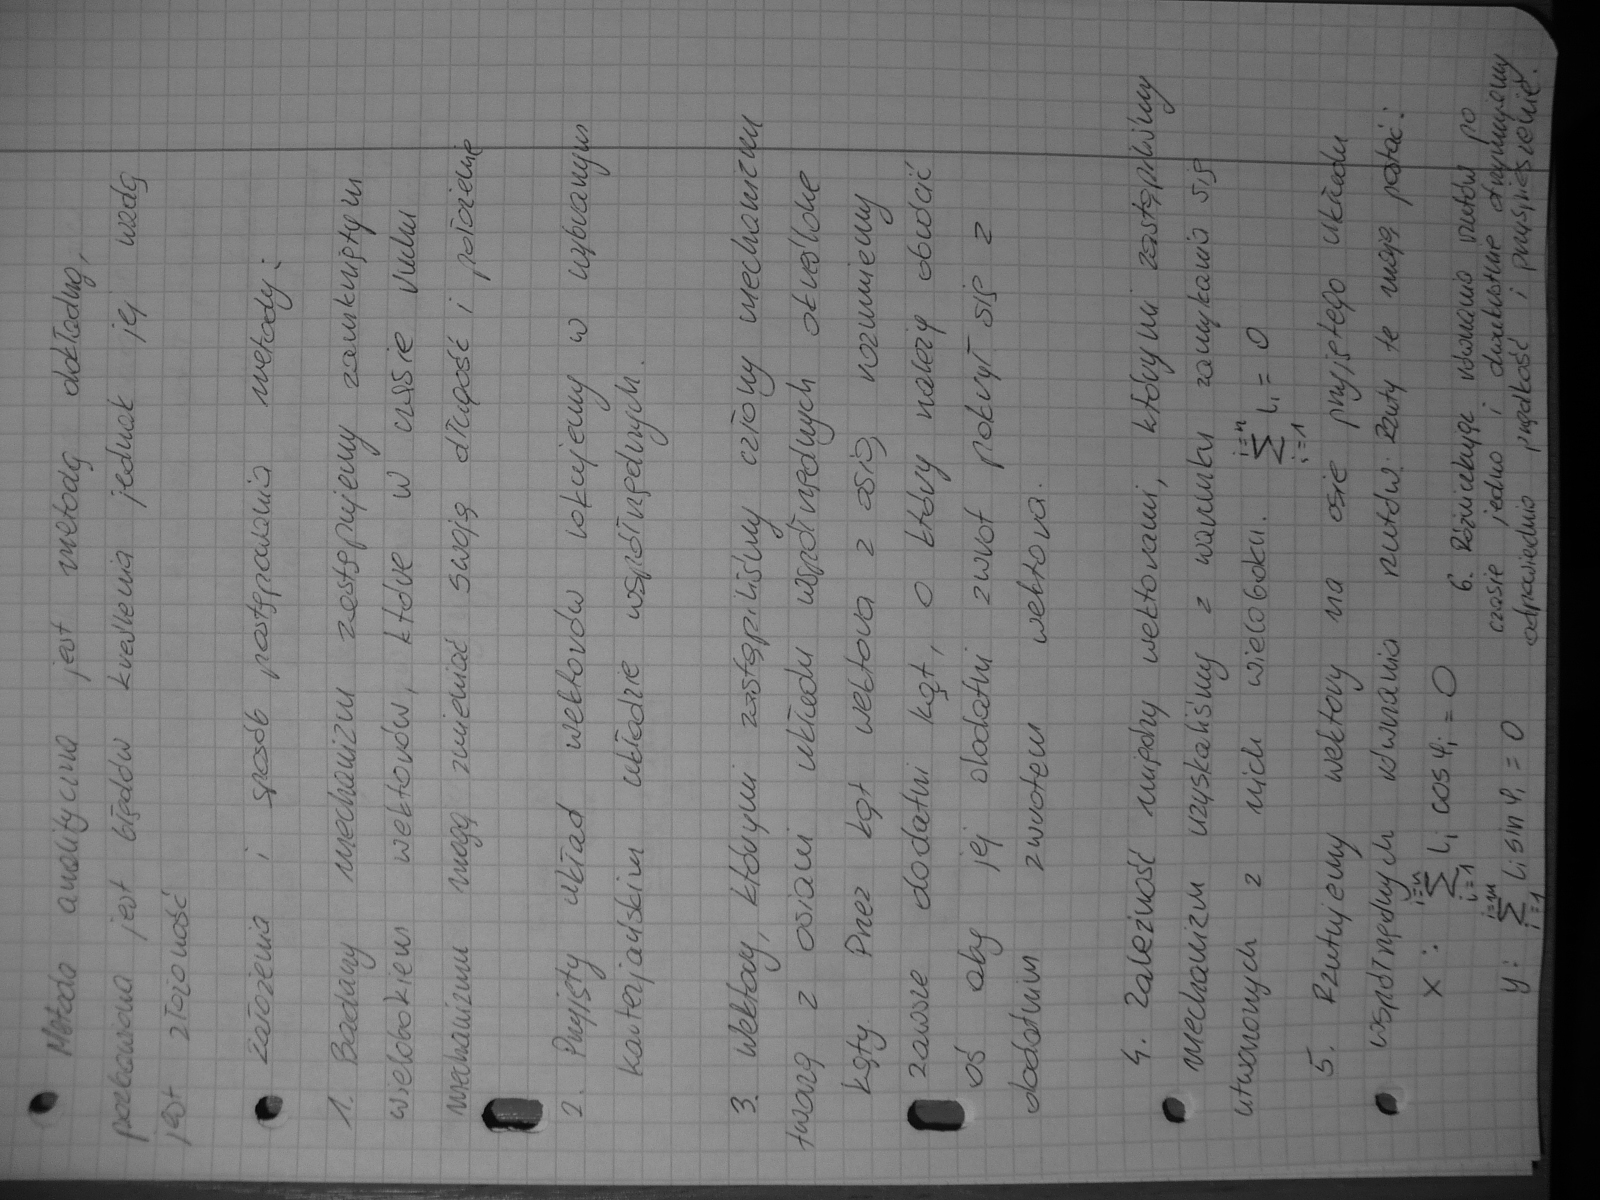 Metoda analityczna jest metodą dokładną,
pozbawiona jest błędów kreślenia jednak jej wadą
jest złożoność
Założenia i sposób postępowania metody:
1. Badany mechanizm zastępujemy zamkniętym
wielobokiem wektorów, które w czasie ruchu
mechanizmu mogą zmieniać swoją długość i położenie
2. Przyjęty układ wektorów lokujemy w wybranym
kartezjańskim układzie współrzędnych.
3. Wektory, którymi zastąpiliśmy człony mechanizmu
tworzą z osiami układu współrzędnych określone
kąty. Przez kąt wektora z osią, rozumiemy
zawsze dodatni kąt, o który należy obrócić
oś aby jej dodatni zwrot pokrył się z
dodatnim zwrotem wektora.
4. Zależność między wektorami, którymi zastąpiliśmy
mechanizm uzyskaliśmy z warunku zamykania się
utworzonych z nich wieloboku. i=n ∑ i=1 li = 0
5. Rzutujemy wektory na osie przyjętego układu
współrzędnych równania rzutów. Rzuty te mają postać:
x: i=n ∑ i=1 li cos φi = 0
y: i=n ∑ i=1 li sin φi = 0
6. Różniczkując równania rzutów po
czasie jedno i dwukrotnie otrzymujemy
odpowiednio prędkość i przyspieszenie.